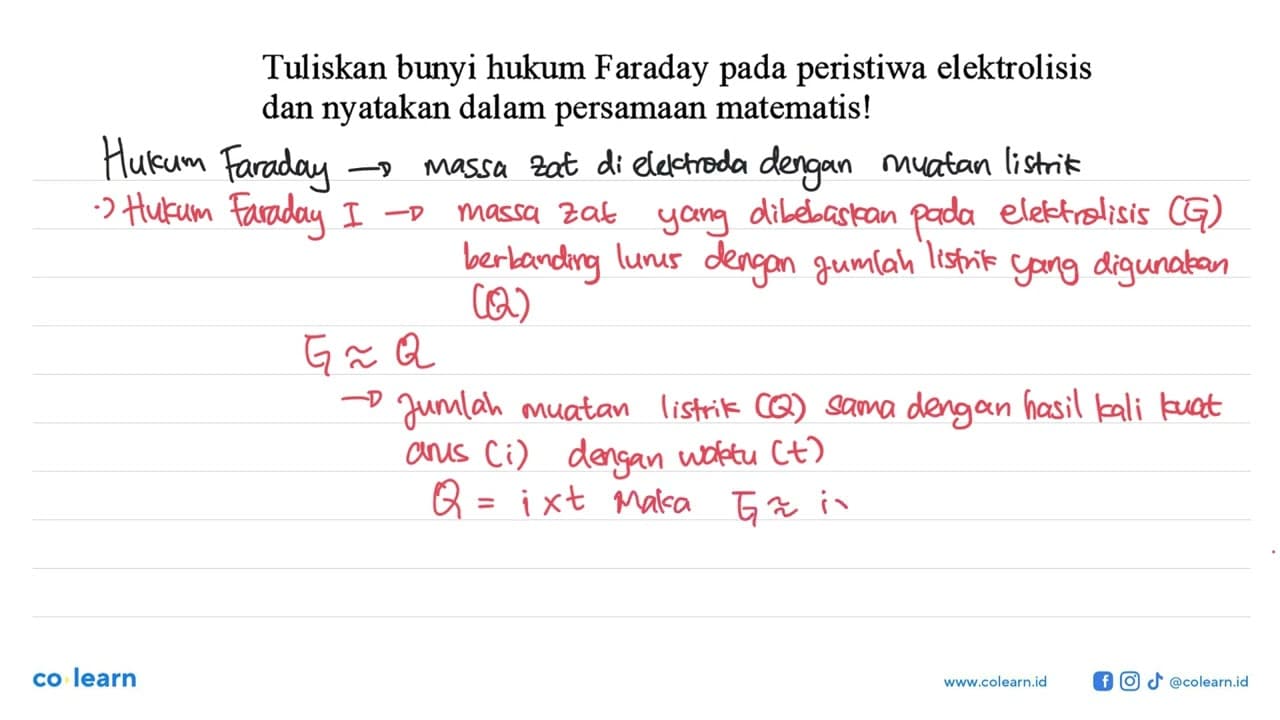 Tuliskan bunyi hukum Faraday pada peristiwa elektrolisis
dan nyatakan dalam persamaan matematis!
Hukum Faraday → massa zat di elektroda dengan muatan listrik
·) Hukum Faraday I → massa zat yang dibebaskan pada elektrolisis (G)
berbanding lurus dengan jumlah listrik yang digunakan
(Q)
G ≈ Q
→ Jumlah muatan listrik (Q) sama dengan hasil kali kuat
arus (i) dengan waktu (t)
Q = i x t Maka G ≈ i
co learn
www.colearn.id @colearn.id